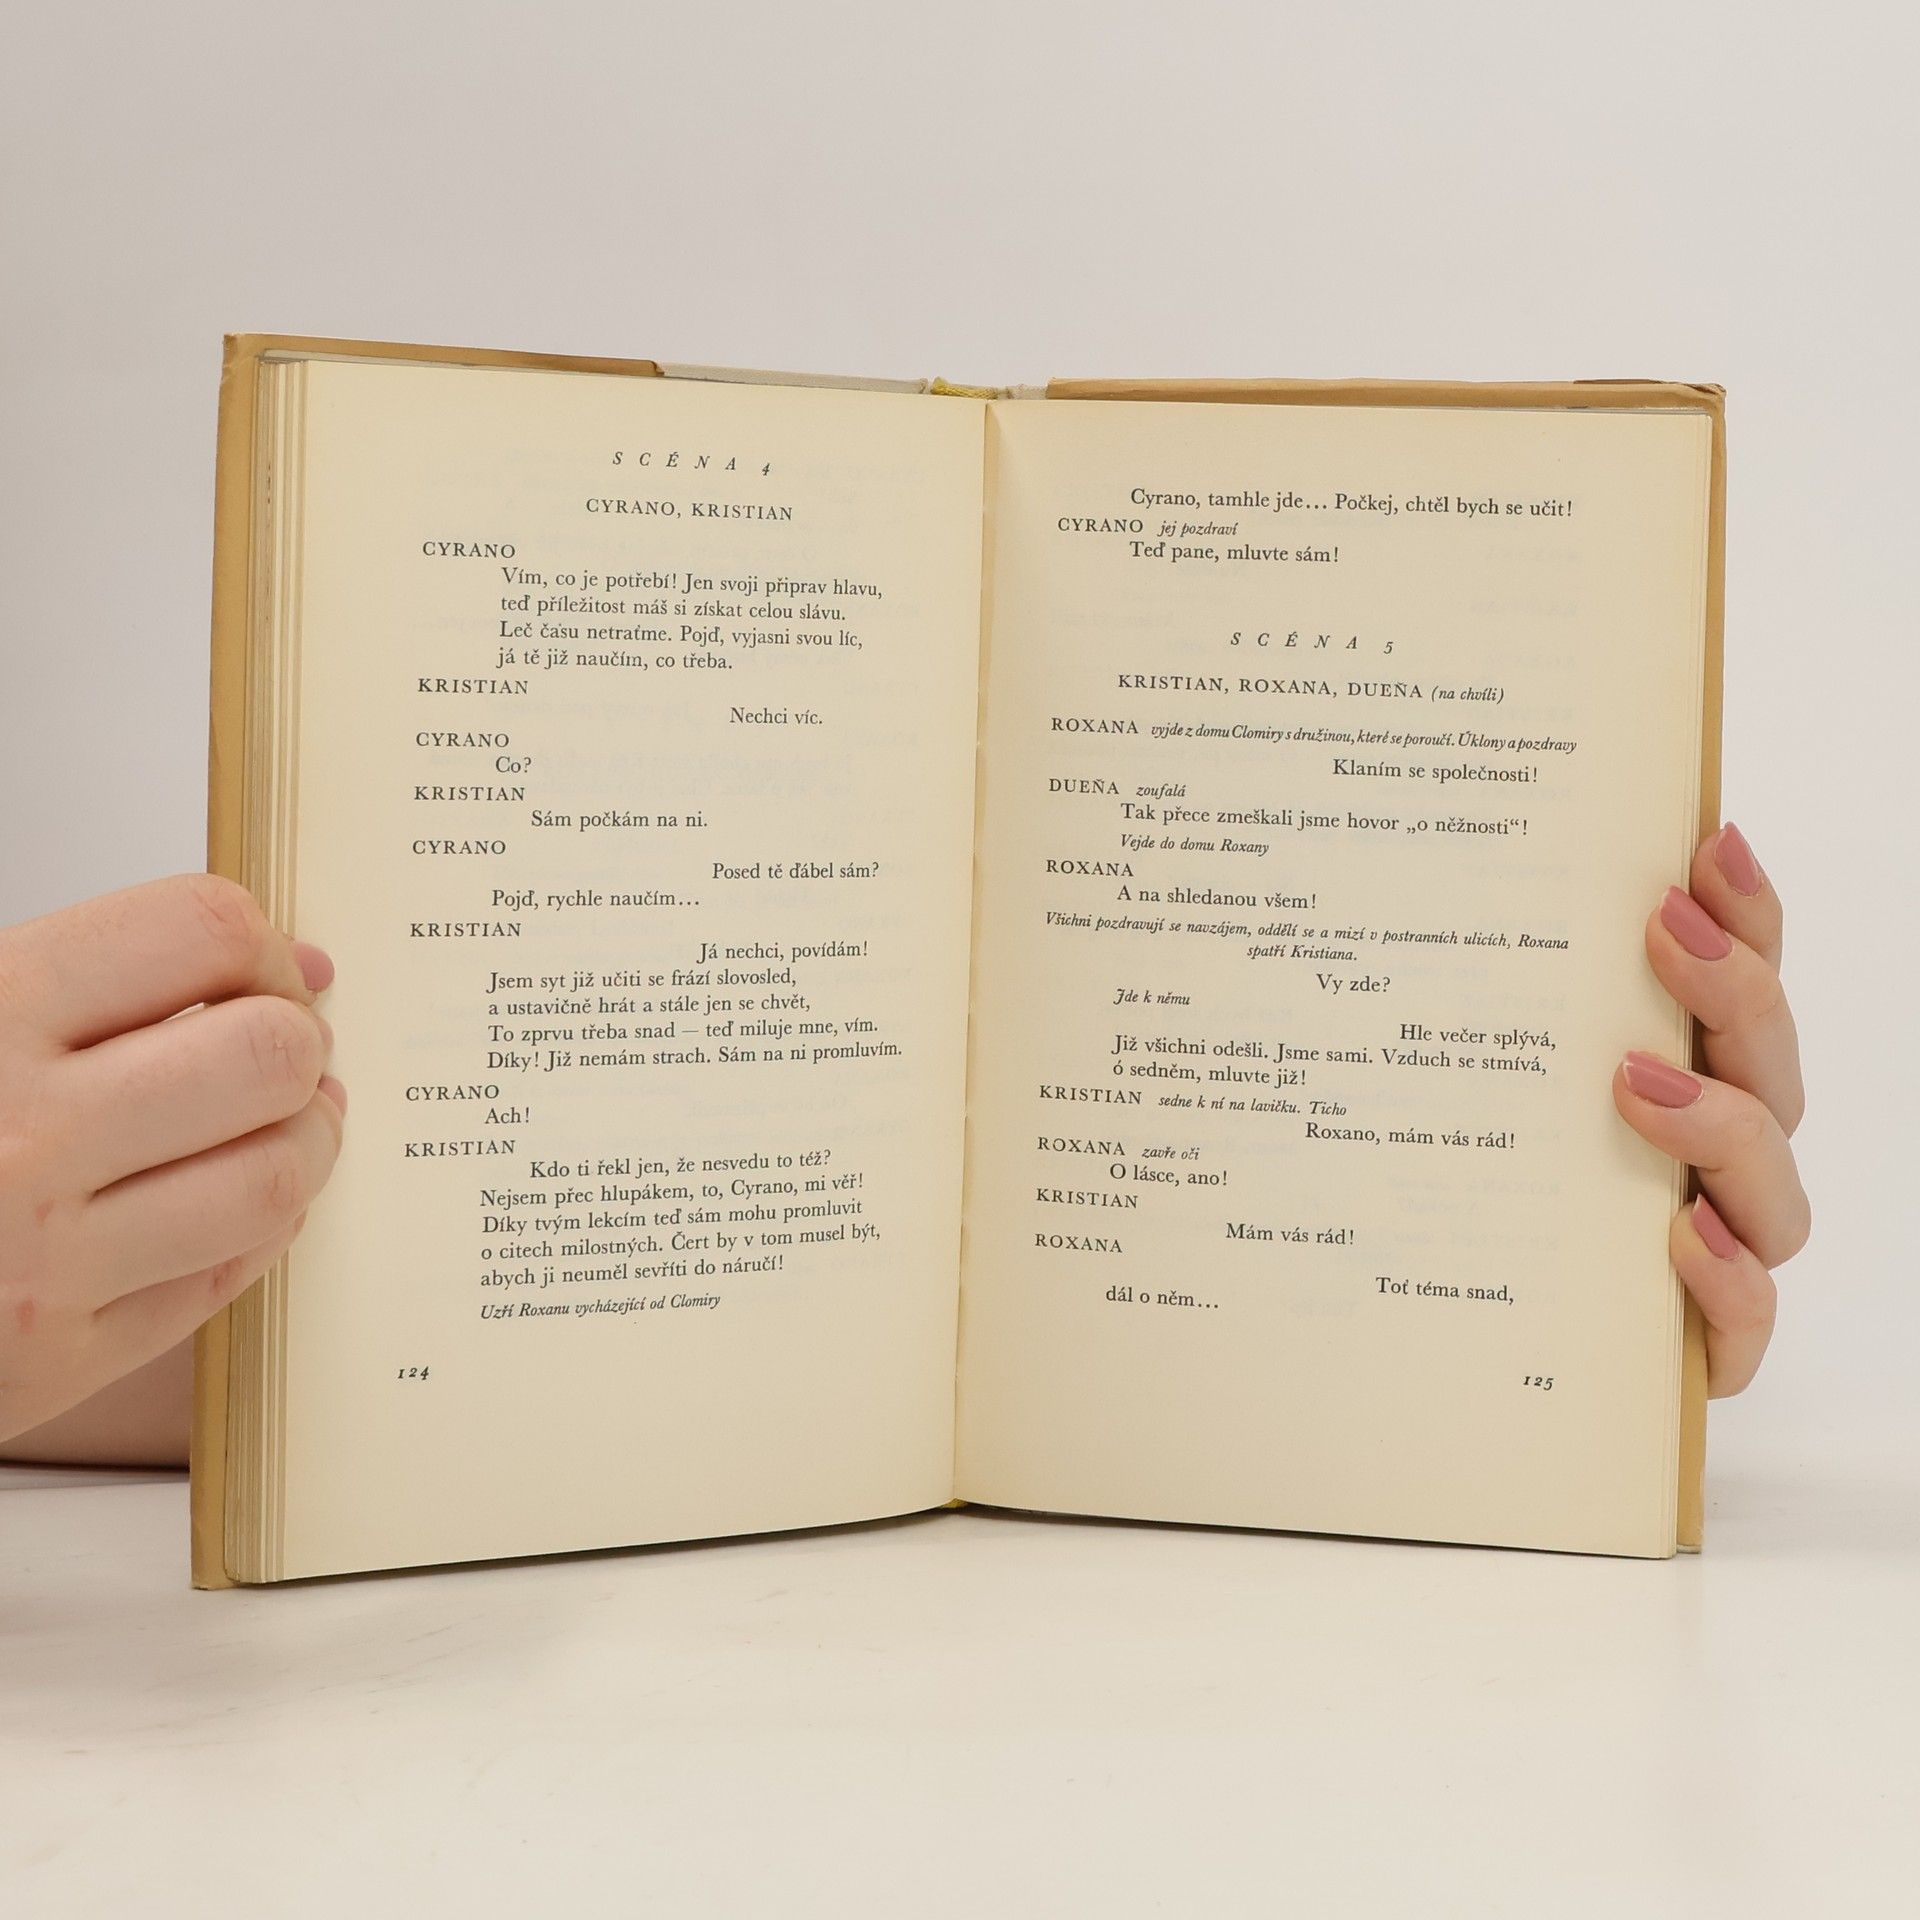 SCÉNA 4
CYRANO, KRISTIAN
CYRANO
Vím, co je potřebí! Jen svoji připrav hlavu,
teď příležitost máš si získat celou slávu.
Leč času netraťme. Pojď, vyjasni svou líc,
já tě již naučím, co třeba.
KRISTIAN
Nechci víc.
CYRANO
Co?
KRISTIAN
Sám počkám na ni.
CYRANO
Posed tě ďábel sám?
Pojď, rychle naučím...
KRISTIAN
Já nechci, povídám!
Jsem syt již učiti se frází slovosled,
a ustavičně hrát a stále jen se chvět,
To zprvu třeba snad — teď miluje mne, vím.
Díky! Již nemám strach. Sám na ni promluvím.
CYRANO
Ach!
KRISTIAN
Kdo ti řekl jen, že nesvedu to též?
Nejsem přec hlupákem, to, Cyrano, mi věř!
Díky tvým lekcím teď sám mohu promluvit
o citech milostných. Čert by v tom musel být,
abych ji neuměl sevříti do náručí!
Uzří Roxanu vycházející od Clomiry
124
Cyrano, tamhle jde... Počkej, chtěl bych se učit!
CYRANO jej pozdraví
Teď pane, mluvte sám!
SCÉNA 5
KRISTIAN, ROXANA, DUEÑA (na chvíli)
ROXANA vyjde z domu Clomiry s družinou, které se poroučí. Úklony a pozdravy
Klaním se společnosti!
DUEÑA zoufalá
Tak přece zmeškali jsme hovor „o něžnosti“!
Vejde do domu Roxany
ROXANA
A na shledanou všem!
Všichni pozdravují se navzájem, oddělí se a mizí v postranních ulicích, Roxana
spatří Kristiana.
Vy zde?
Jde k němu
Hle večer splývá,
Již všichni odešli. Jsme sami. Vzduch se stmívá,
ó sedněm, mluvte již!
KRISTIAN sedne k ní na lavičku. Ticho
Roxano, mám vás rád!
ROXANA zavře oči
O lásce, ano!
KRISTIAN
Mám vás rád!
ROXANA
Toť téma snad,
dál o něm...
125